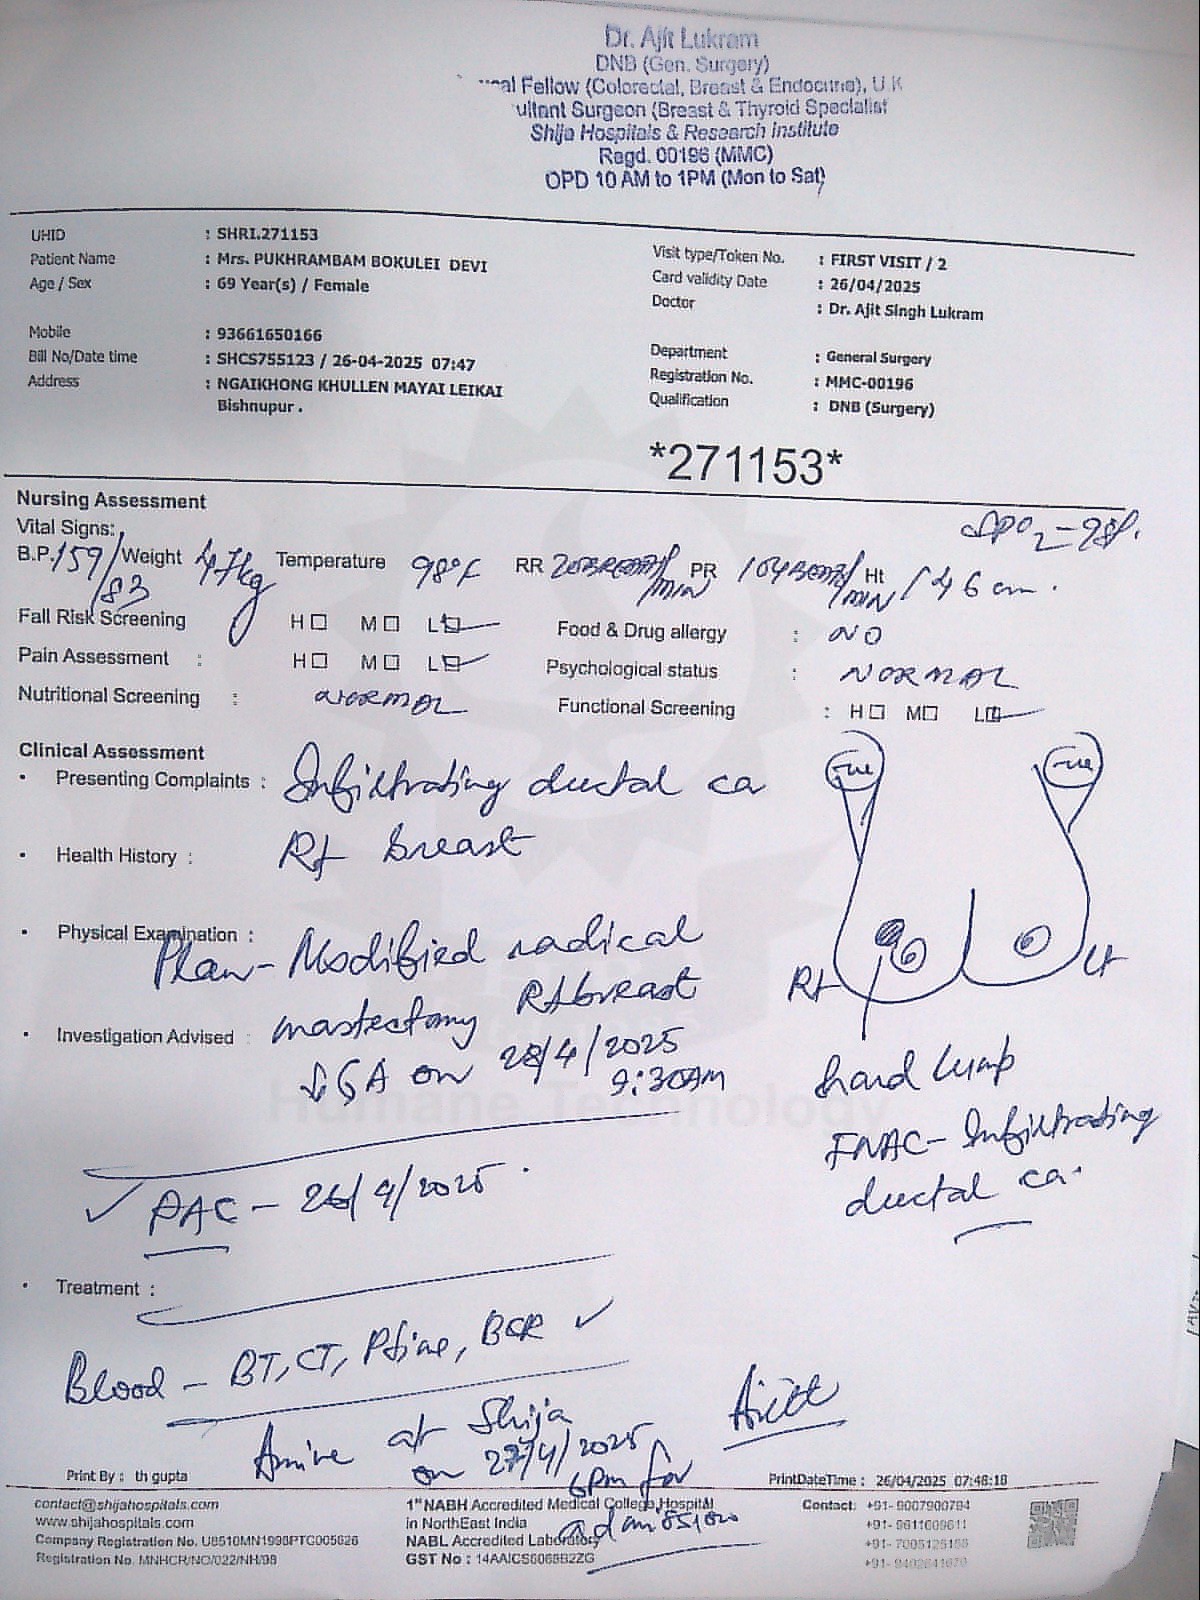 Dr. Ajit Lukram
DNB (Gen. Surgery)
Fellow (Colorectal, Breast & Endocrine), U.K
Surgeon (Breast & Thyroid Specialist
Shija Hospitals & Research Institute
Regd. 00196 (MMC)
OPD 10 AM to 1PM (Mon to Sat)
UHID : SHRI.271153
Patient Name : Mrs. PUKHRAMBAM BOKULEI DEVI
Age / Sex : 69 Year(s) / Female
Mobile : 93661650166
Bill No/Date time : SHCS755123 / 26-04-2025 07:47
Address : NGAIKHONG KHULLEN MAYAI LEIKAI
Bishnupur .
Visit type/Token No. : FIRST VISIT / 2
Card validity Date : 26/04/2025
Doctor : Dr. Ajit Singh Lukram
Department : General Surgery
Registration No. : MMC-00196
Qualification : DNB (Surgery)
*271153*
Nursing Assessment
SPO2 - 98%.
Vital Signs:
B.P. 159/83 Weight 47kg Temperature 98°F RR 20 /MIN PR 104 /MIN Ht 146 cm.
Fall Risk Screening H M L Food & Drug allergy : NO
Pain Assessment : H M L Psychological status : NORMAL
Nutritional Screening : NORMAL Functional Screening : H M L
Clinical Assessment
• Presenting Complaints : Infiltrating ductal ca
• Health History : Rt breast
-ve -ve
• Physical Examination :
Plan - Modified radical
mastectomy Rt breast
• Investigation Advised :
↓ GA on 28/4/2025
9:30AM
Rt Lt
hard lump
FNAC - Infiltrating
ductal ca.
✓ PAC - 26/4/2025.
• Treatment :
Blood - BT, CT, Ptime, BGR ✓
Arrive at Shija
on 27/4/2025
6Pm for
admission
Print By : th gupta
PrintDateTime : 26/04/2025 07:48:18
contact@shijahospitals.com
www.shijahospitals.com
Company Registration No. U8510MN1998PTC005626
Registration No. MNHCR/NO/022/NH/98
1st NABH Accredited Medical College Hospital
in NorthEast India
NABL Accredited Laboratory
GST No : 14AAICS6068B2ZG
Contact: +91- 9007900794
Humane Technology